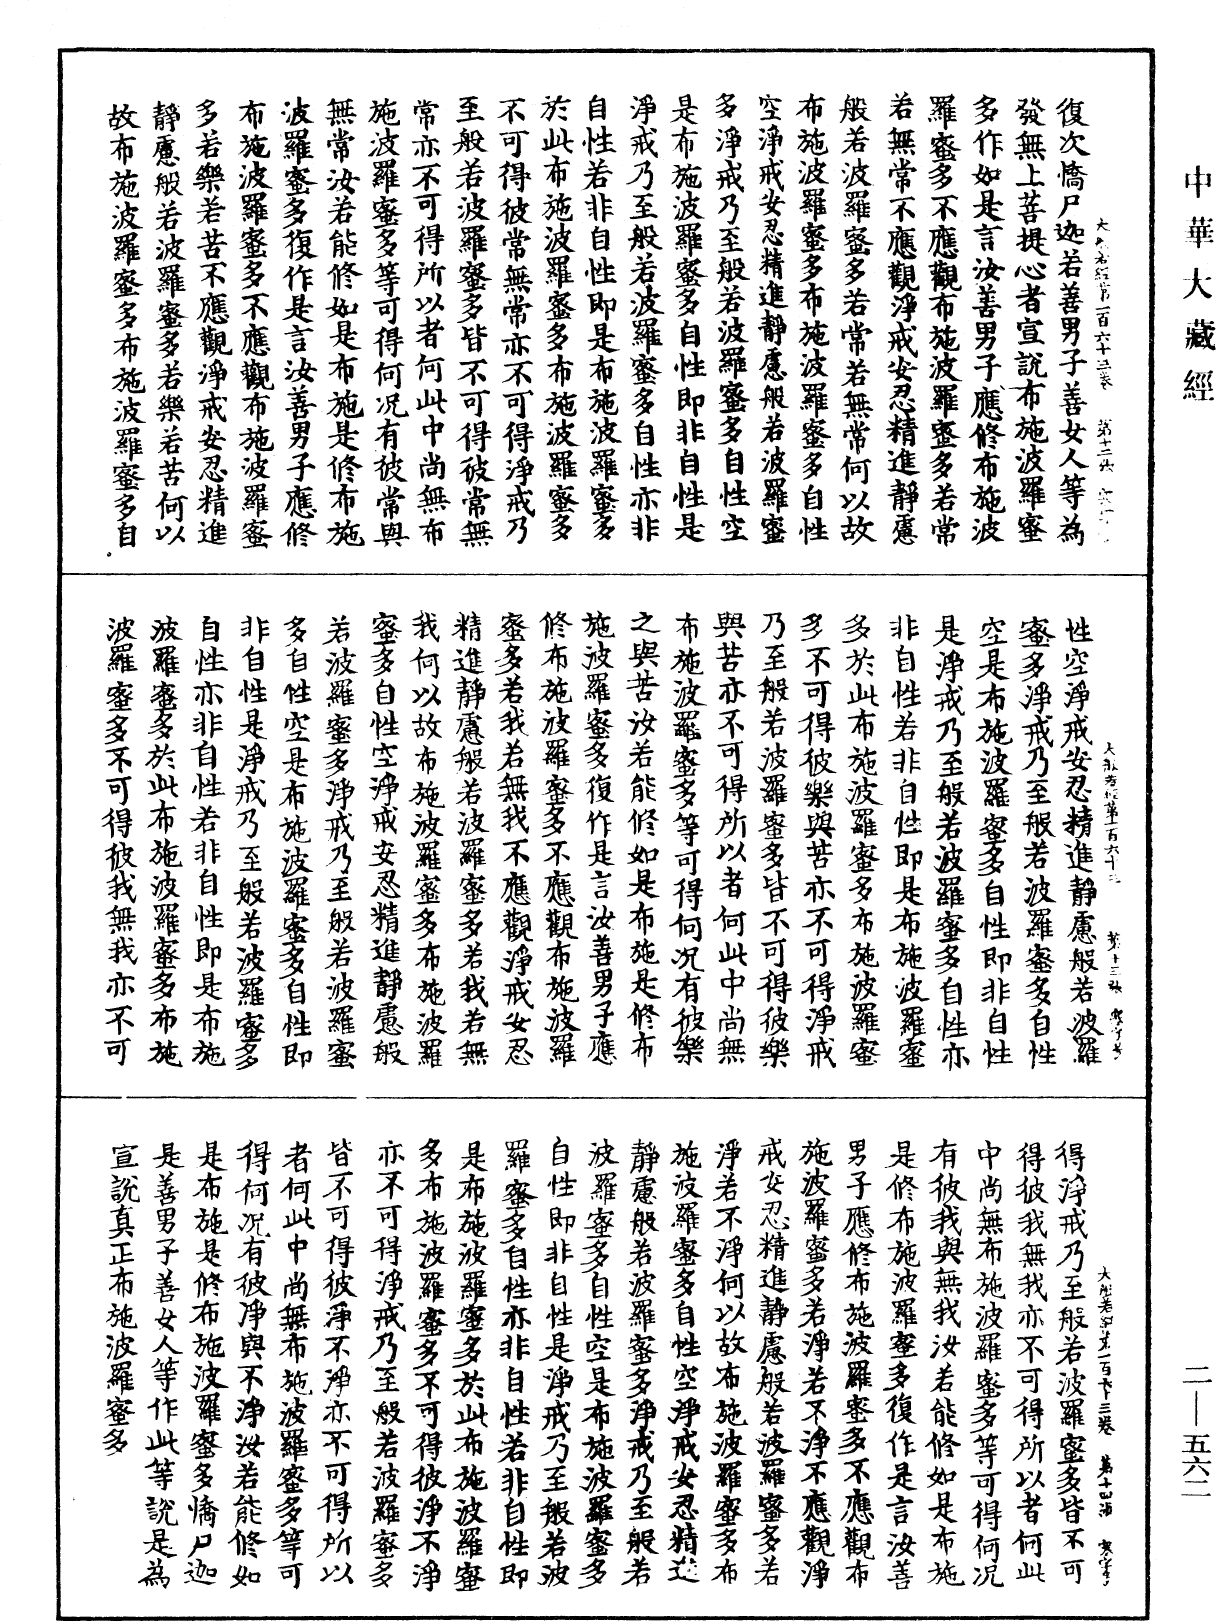 中華大藏經
大般若經第一百六十三卷 第十二張
復次憍尸迦若善男子善女人等為
發無上菩提心者宣說布施波羅蜜
多作如是言汝善男子應修布施波
羅蜜多不應觀布施波羅蜜多若常
若無常不應觀淨戒安忍精進靜慮
般若波羅蜜多若常若無常何以故
布施波羅蜜多布施波羅蜜多自性
空淨戒安忍精進靜慮般若波羅蜜
多淨戒乃至般若波羅蜜多自性空
是布施波羅蜜多自性即非自性是
淨戒乃至般若波羅蜜多自性亦非
自性若非自性即是布施波羅蜜多
於此布施波羅蜜多布施波羅蜜多
不可得彼常無常亦不可得淨戒乃
至般若波羅蜜多皆不可得彼常無
常亦不可得所以者何此中尚無布
施波羅蜜多等可得何況有彼常與
無常汝若能修如是布施是修布施
波羅蜜多復作是言汝善男子應修
布施波羅蜜多不應觀布施波羅蜜
多若樂若苦不應觀淨戒安忍精進
靜慮般若波羅蜜多若樂若苦何以
故布施波羅蜜多布施波羅蜜多自
大般若經第一百六十三 第十三張
性空淨戒安忍精進靜慮般若波羅
蜜多淨戒乃至般若波羅蜜多自性
空是布施波羅蜜多自性即非自性
是淨戒乃至般若波羅蜜多自性亦
非自性若非自性即是布施波羅蜜
多於此布施波羅蜜多布施波羅蜜
多不可得彼樂與苦亦不可得淨戒
乃至般若波羅蜜多皆不可得彼樂
與苦亦不可得所以者何此中尚無
布施波羅蜜多等可得何況有彼樂
之與苦汝若能修如是布施是修布
施波羅蜜多復作是言汝善男子應
修布施波羅蜜多不應觀布施波羅
蜜多若我若無我不應觀淨戒安忍
精進靜慮般若波羅蜜多若我若無
我何以故布施波羅蜜多布施波羅
蜜多自性空淨戒安忍精進靜慮般
若波羅蜜多淨戒乃至般若波羅蜜
多自性空是布施波羅蜜多自性即
非自性是淨戒乃至般若波羅蜜多
自性亦非自性若非自性即是布施
波羅蜜多於此布施波羅蜜多布施
波羅蜜多不可得彼我無我亦不可
大般若經第一百六十三卷 第十四張
得淨戒乃至般若波羅蜜多皆不可
得彼我無我亦不可得所以者何此
中尚無布施波羅蜜多等可得何況
有彼我與無我汝若能修如是布施
是修布施波羅蜜多復作是言汝善
男子應修布施波羅蜜多不應觀布
施波羅蜜多若淨若不淨不應觀淨
戒安忍精進靜慮般若波羅蜜多若
淨若不淨何以故布施波羅蜜多布
施波羅蜜多自性空淨戒安忍精進
靜慮般若波羅蜜多淨戒乃至般若
波羅蜜多自性空是布施波羅蜜多
自性即非自性是淨戒乃至般若波
羅蜜多自性亦非自性若非自性即
是布施波羅蜜多於此布施波羅蜜
多布施波羅蜜多不可得彼淨不淨
亦不可得淨戒乃至般若波羅蜜多
皆不可得彼淨不淨亦不可得所以
者何此中尚無布施波羅蜜多等可
得何況有彼淨與不淨汝若能修如
是布施是修布施波羅蜜多憍尸迦
是善男子善女人等作此等說是為
宣說真正布施波羅蜜多
二—五六二